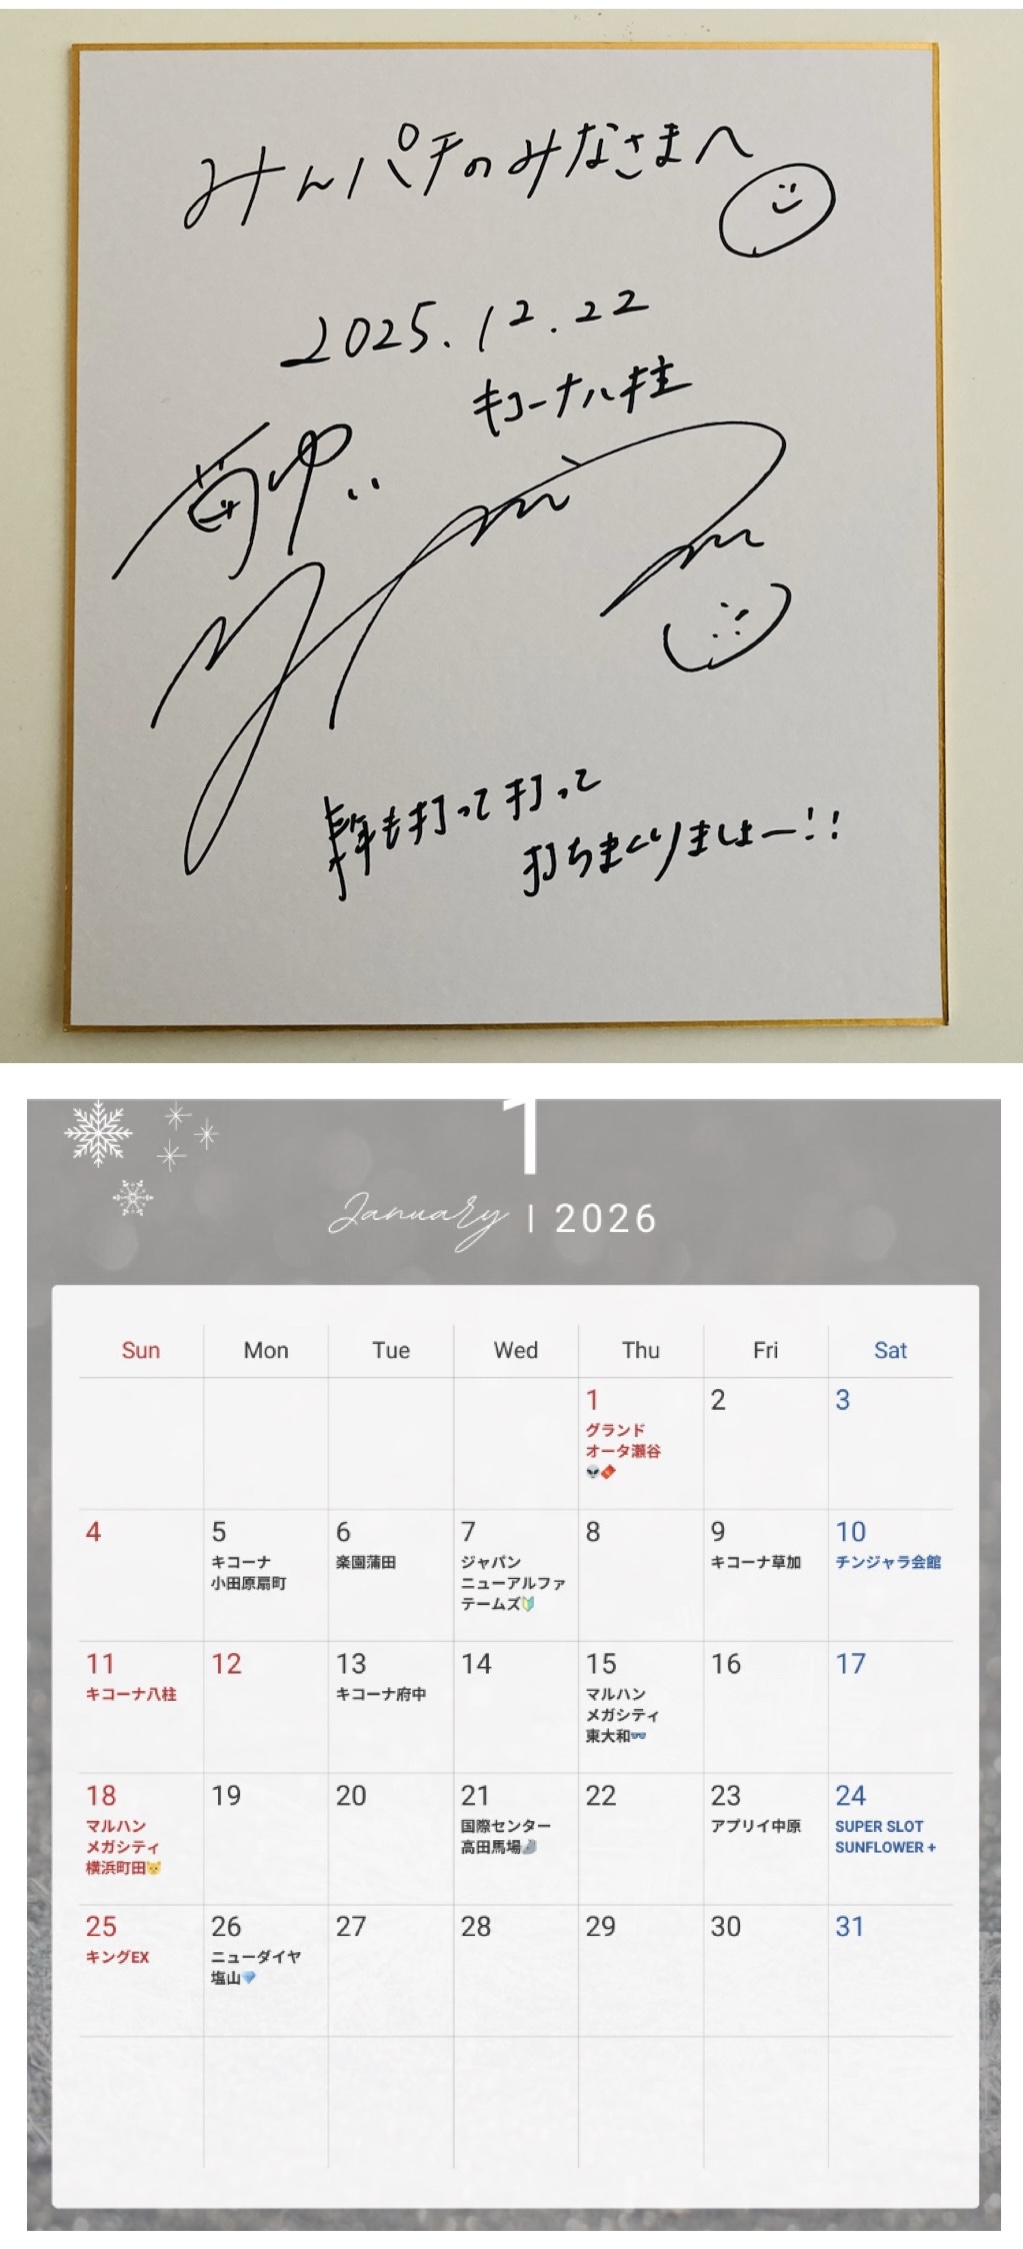 みんパチのみなさまへ
2025.12.22
キコーナ八柱
来年も打って打って
打ちまくりましょー!!
1
January | 2026
Sun Mon Tue Wed Thu Fri Sat
1 2 3
グランド
オータ瀬谷
👽🧧
4 5 6 7 8 9 10
キコーナ
小田原扇町
楽園蒲田
ジャパン
ニューアルファ
テームズ🔰
キコーナ草加
チンジャラ会館
11 12 13 14 15 16 17
キコーナ八柱
キコーナ府中
マルハン
メガシティ
東大和👓
18 19 20 21 22 23 24
マルハン
メガシティ
横浜町田🐱
国際センター
高田馬場🦾
アプリイ中原
SUPER SLOT
SUNFLOWER +
25 26 27 28 29 30 31
キングEX
ニューダイヤ
塩山💎